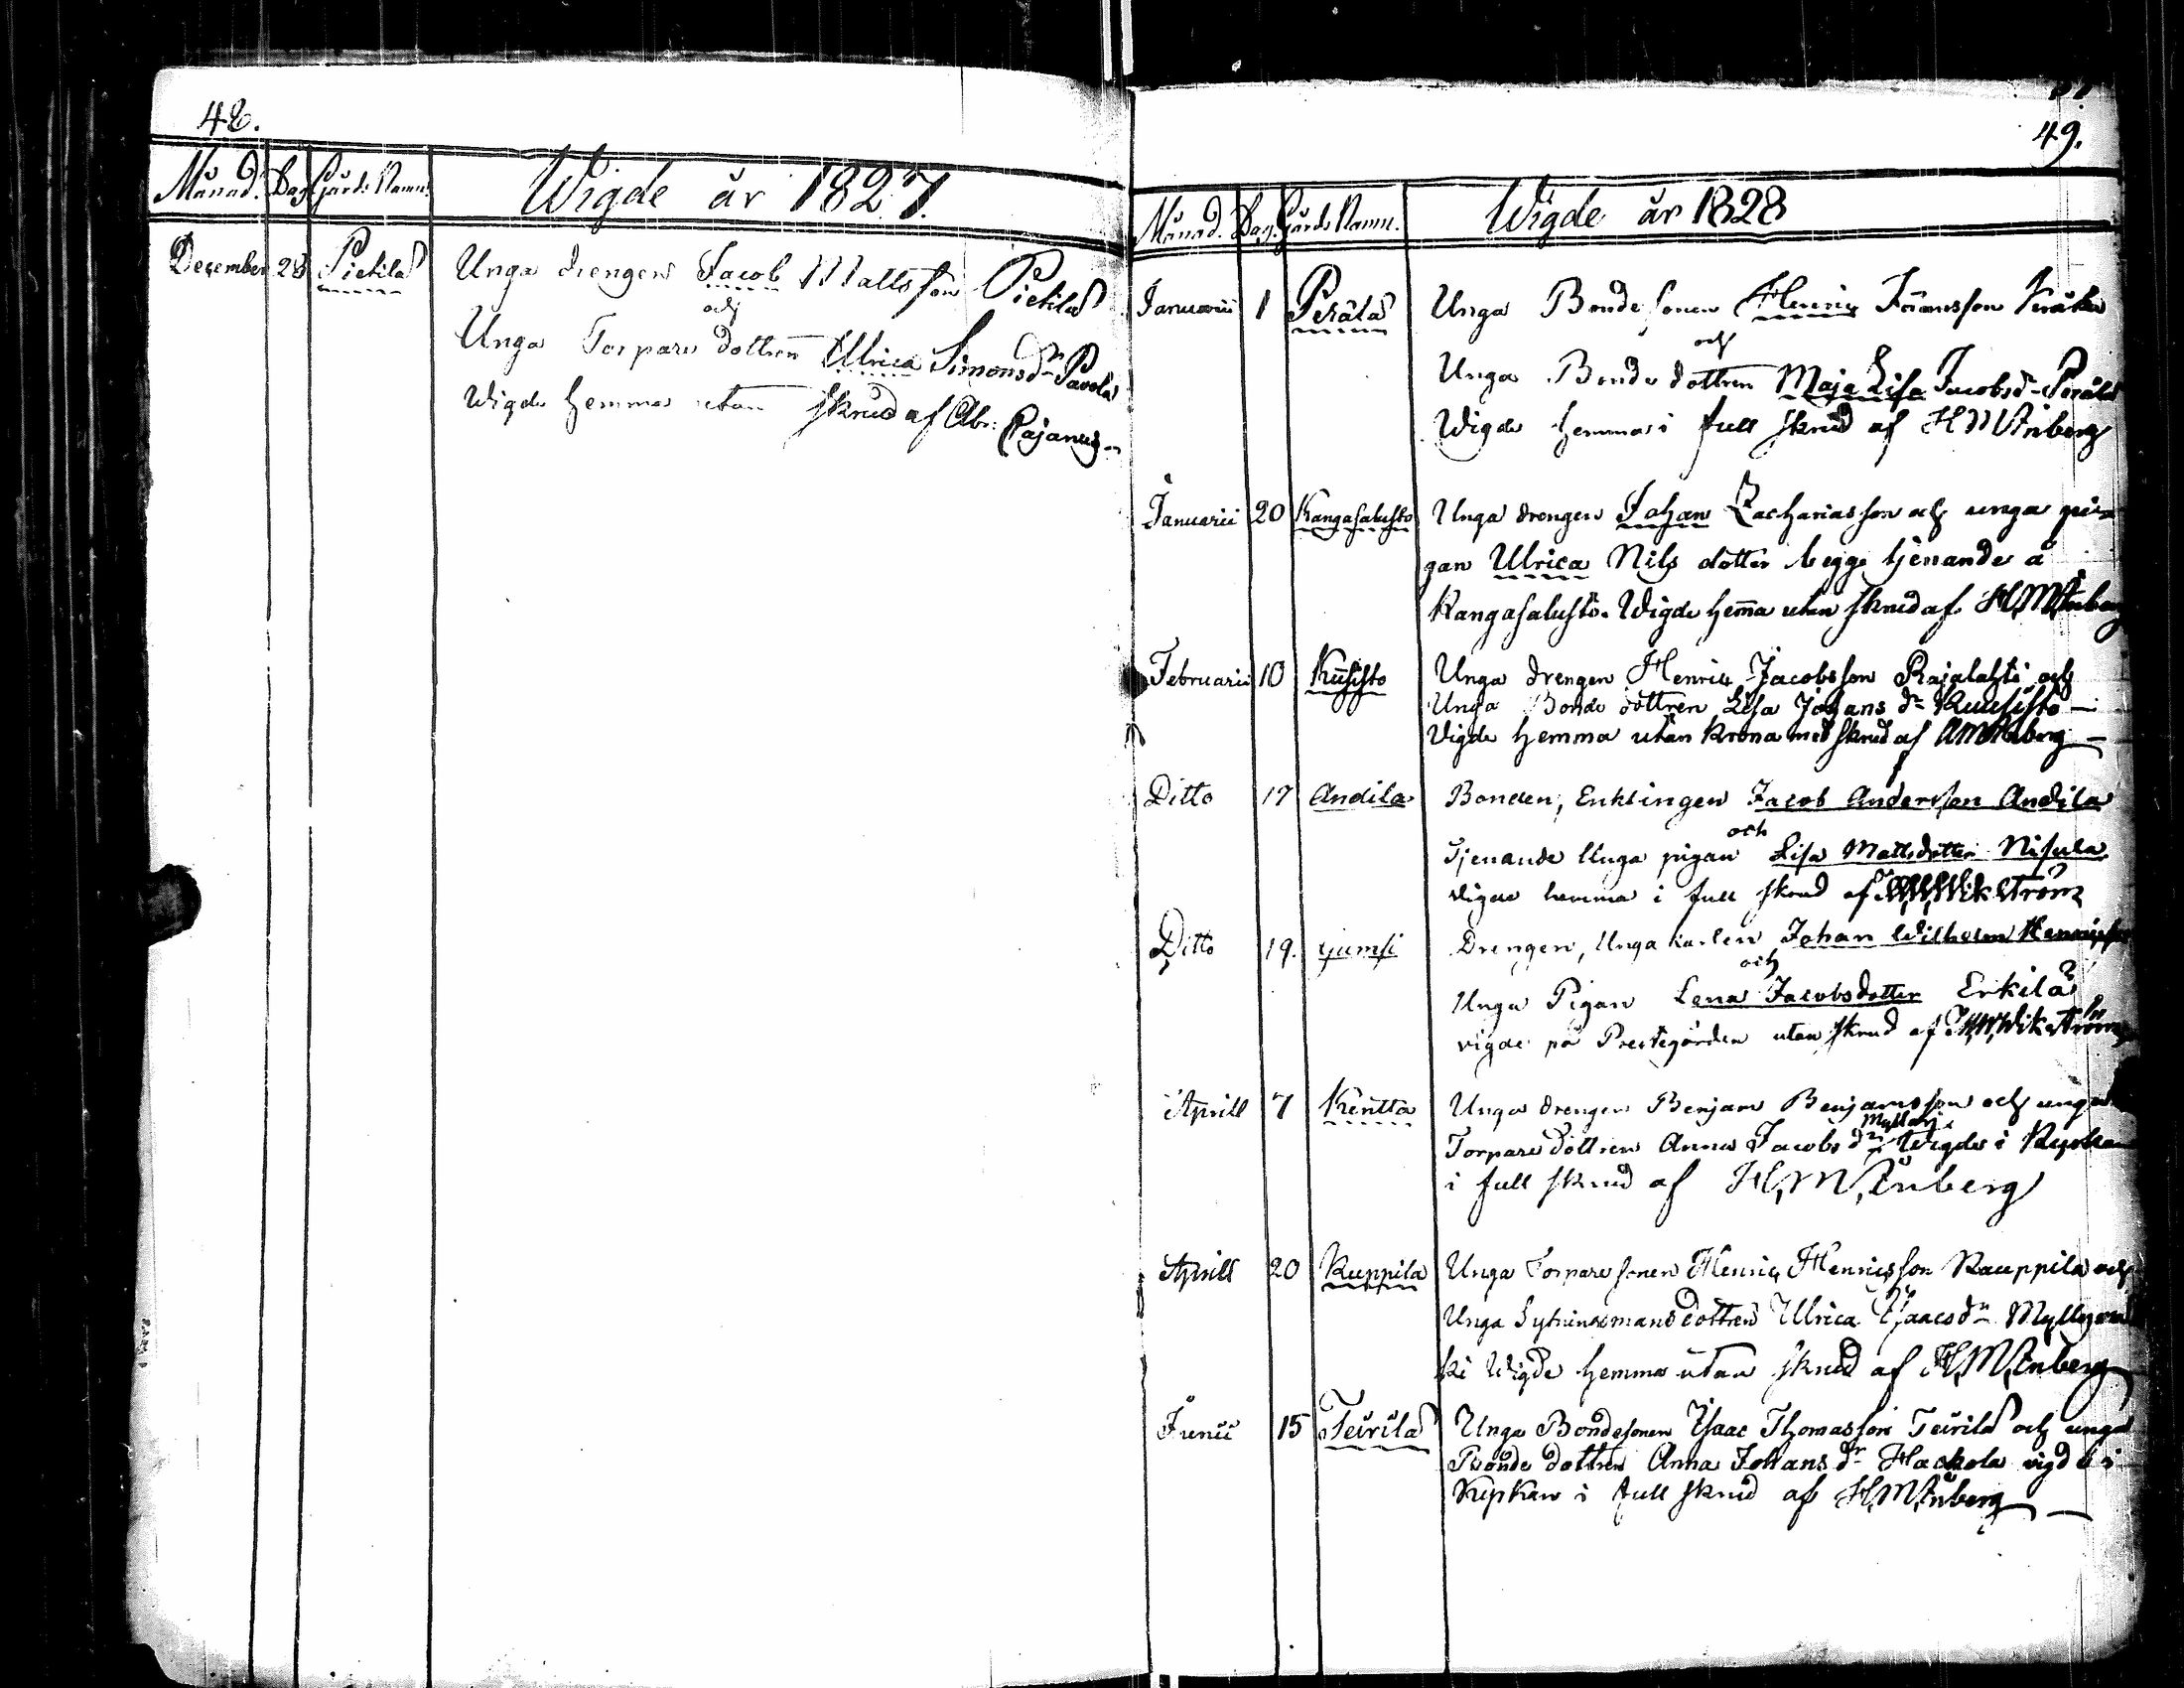 48.
Månad. Dag Gårds Namn. Wigde år 1827.
December 28 Pietilä Unga drengen Jacob Mattsson Pietilä
och
Unga Torpare dottren Ulrica Simonsdr Pavola
Wigde hemma utan skrud af Abr: Pajanus
49.
Månad. Dag. Gårds Namn. Wigde år 1828
Januarii 1 Perälä Unga Bonde sonen Henric
och
Unga Bonde dottren Maja Lisa Jacobsdr Perälä
Wigde hemma i full skrud af H M Ånberg
Januarii 20 Kangasalusto Unga drengen Johan Zachariasson och unga pi-
gan Ulrica Nils dotter begge tjenande å
Kangasalusto. Wigde hem̅a utan skrud af H,M,Ånberg
Februarii 10 Kusisto Unga drengen Henric Jacobsson Rajalahti och
Unga Bonde dottren Lisa Johans dr Kuusisto
Vigde hemma utan Krona med skrud af Ånberg
Ditto 17 Andila Bonden, Enklingen Jacob Andersson Andila
och
Tjenande Unga pigan Lisa Mattsdotter Nisula
vigde hemma i full skrud af Wikström
Ditto 19. Jumsi Drengen, Unga karlen Johan Wilhelm Henricsson
och
Unga Pigan Lena Jacobsdotter Erkilä
vigde på Prestegården utan skrud af Wikström
Aprill 7 Kentta Unga drengen Benjam Benjamsson och unga
Torpare dottren Anna Jacobs dr Wigde i Kyrkan
i full skrud af H,M,Ånberg
Aprill 20 Kuppila Unga Torpare sonen Henric Henricsson Kauppila och
Unga Sytningsmans dottren Ulrica Isaacs dr
ki Wigde hemma utan skrud af H,M,Ånberg
Junii 15 Teirila Unga Bondesonen Isaac Thomasson Teirila och unga
Bonde dottren Anna Johans dr Hackola vigde i
Kyrkan i full skrud af H,M,Ånberg